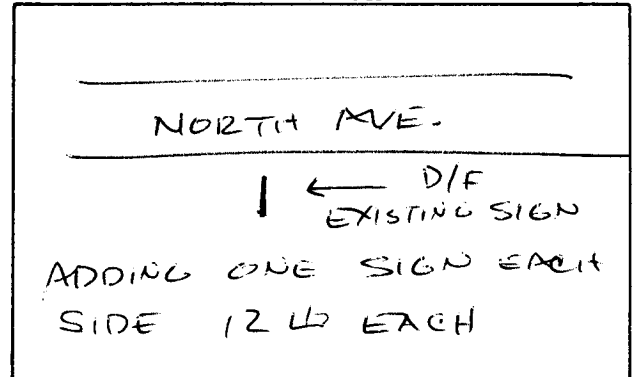 NORTH AVE.
← D/F
EXISTING SIGN
ADDING ONE SIGN EACH
SIDE 12 EACH